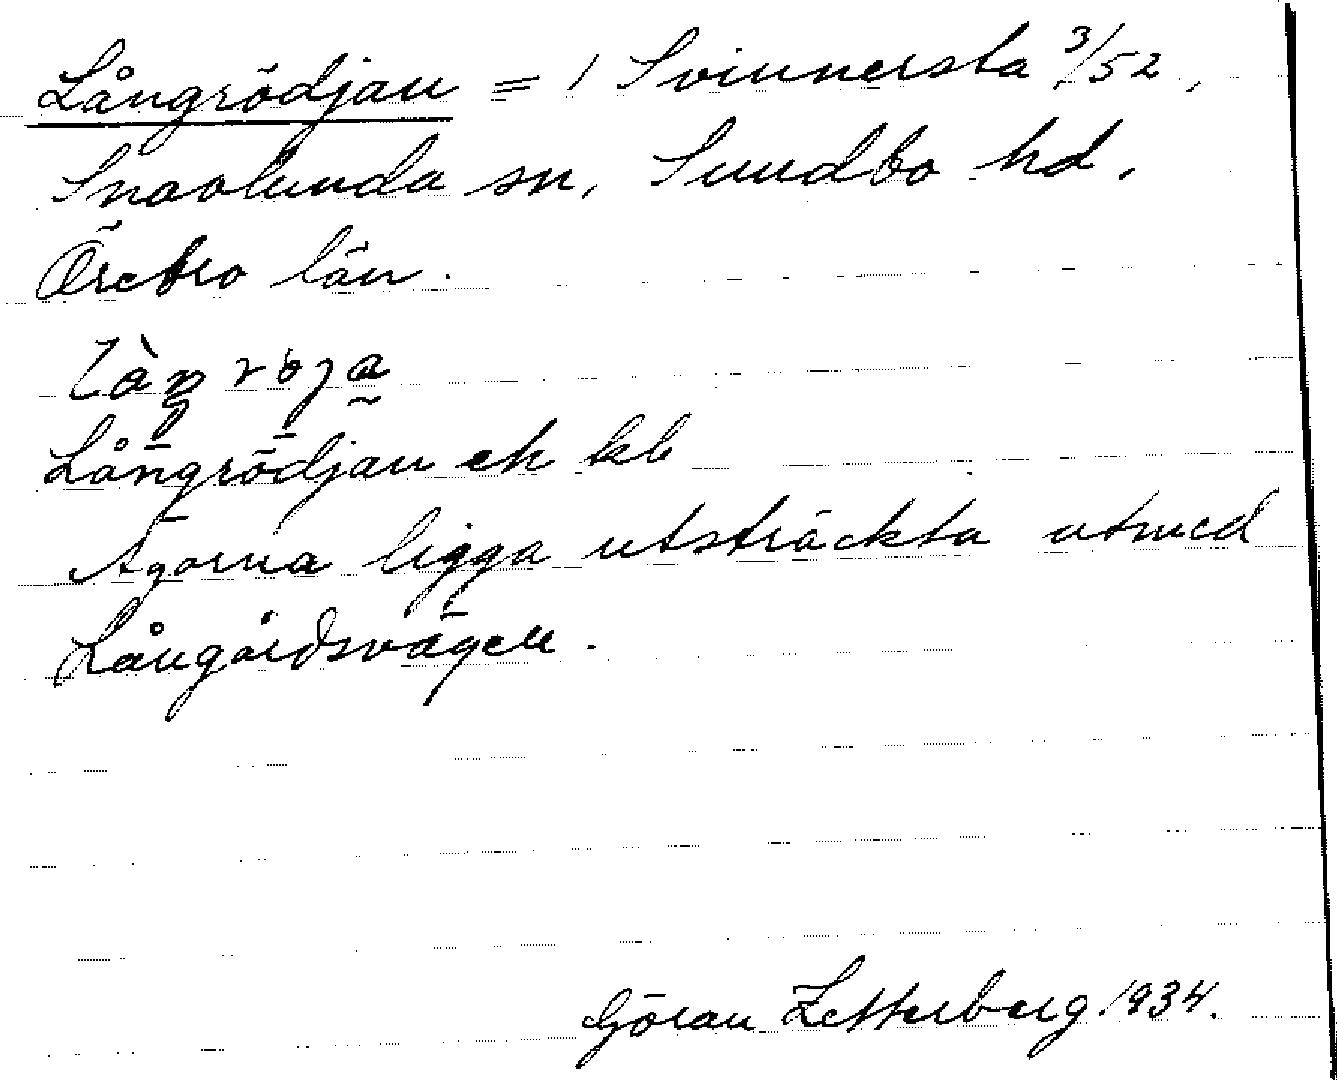 Långrödjan = 1 Svinnersta 3/52,
Snavlunda sn, Sundbo hd,
Örebro län.
làŋröja
Långrödjan ek kb
Ägorna ligga utsträckta utmed
Långårdsvägen.
Göran Zetterberg 1934.